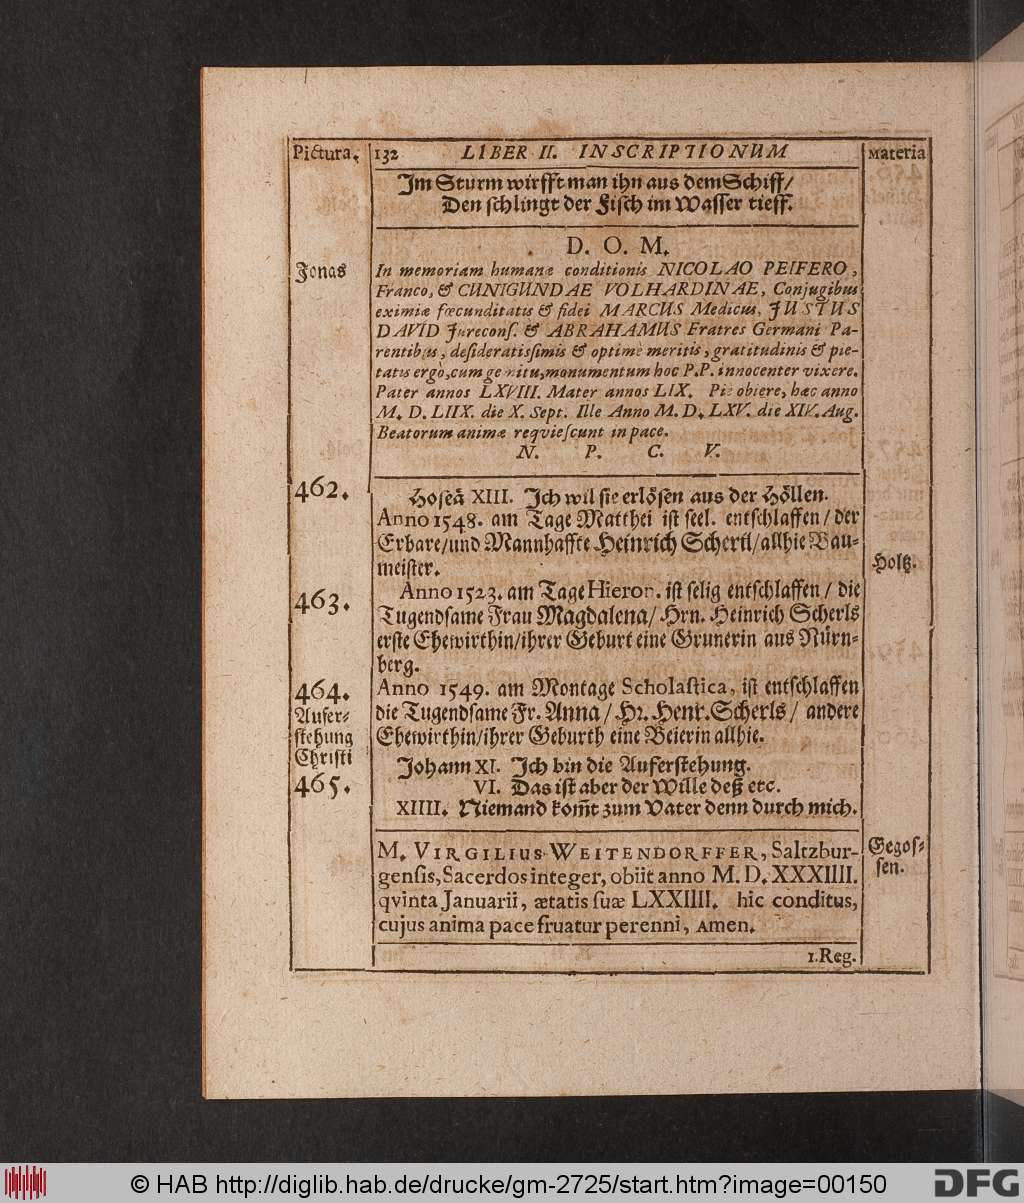 Pictura. 132 LIBER II. INSCRIPTIONUM Materia
Im Sturm wirfft man ihn aus dem Schiff/
Den schlingt der Fisch im Wasser tieff.
D. O. M.
Jonas
In memoriam humanæ conditionis NICOLAO PEIFERO,
Franco, & CUNIGUNDAE VOLHARDINAE, Conjugibus
eximiæ fœcunditatis & fidei MARCUS Medicus, JUSTUS
DAVID Jureconſ. & ABRAHAMUS Fratres Germani Pa-
rentibus, deſideratiſsimis & optimè meritis, gratitudinis & pie-
tatis ergò, cum gemitu, monumentum hoc P.P. innocenter vixere.
Pater annos LXVIII. Mater annos LIX. Piè obiere, hæc anno
M. D. LIIX. die X. Sept. Ille Anno M. D. LXV. die XIV. Aug.
Beatorum animæ reqvieſcunt in pace.
N. P. C. V.
462.
Hoſeä XIII. Ich wil ſie erlöſen aus der Höllen.
Anno 1548. am Tage Matthei iſt ſeel. entſchlaffen/ der
Erbare/und Mannhaffte Heinrich Scherl/allhie Bau-
meiſter.
Holtz.
463.
Anno 1523. am Tage Hieron. iſt ſelig entſchlaffen/ die
Tugendſame Frau Magdalena/ Hrn. Heinrich Scherls
erſte Ehewirthin/ihrer Geburt eine Grunerin aus Nürn-
berg.
464.
Anno 1549. am Montage Scholaſtica, iſt entſchlaffen
die Tugendſame Fr. Anna/ Hr. Henr. Scherls/ andere
Ehewirthin/ihrer Geburth eine Beierin allhie.
Aufer-
ſtehung
Chriſti
465.
Johann XI. Ich bin die Auferſtehung.
VI. Das iſt aber der Wille deß etc.
XIIII. Niemand kom̃t zum Vater denn durch mich.
M. VIRGILIUS WEITENDORFFER, Saltzbur-
genſis, Sacerdos integer, obiit anno M. D. XXXIIII.
qvinta Januarii, ætatis ſuæ LXXIIII. hic conditus,
cujus anima pace fruatur perenni, Amen.
Gegoſ-
ſen.
1. Reg.
© HAB http://diglib.hab.de/drucke/gm-2725/start.htm?image=00150
DFG